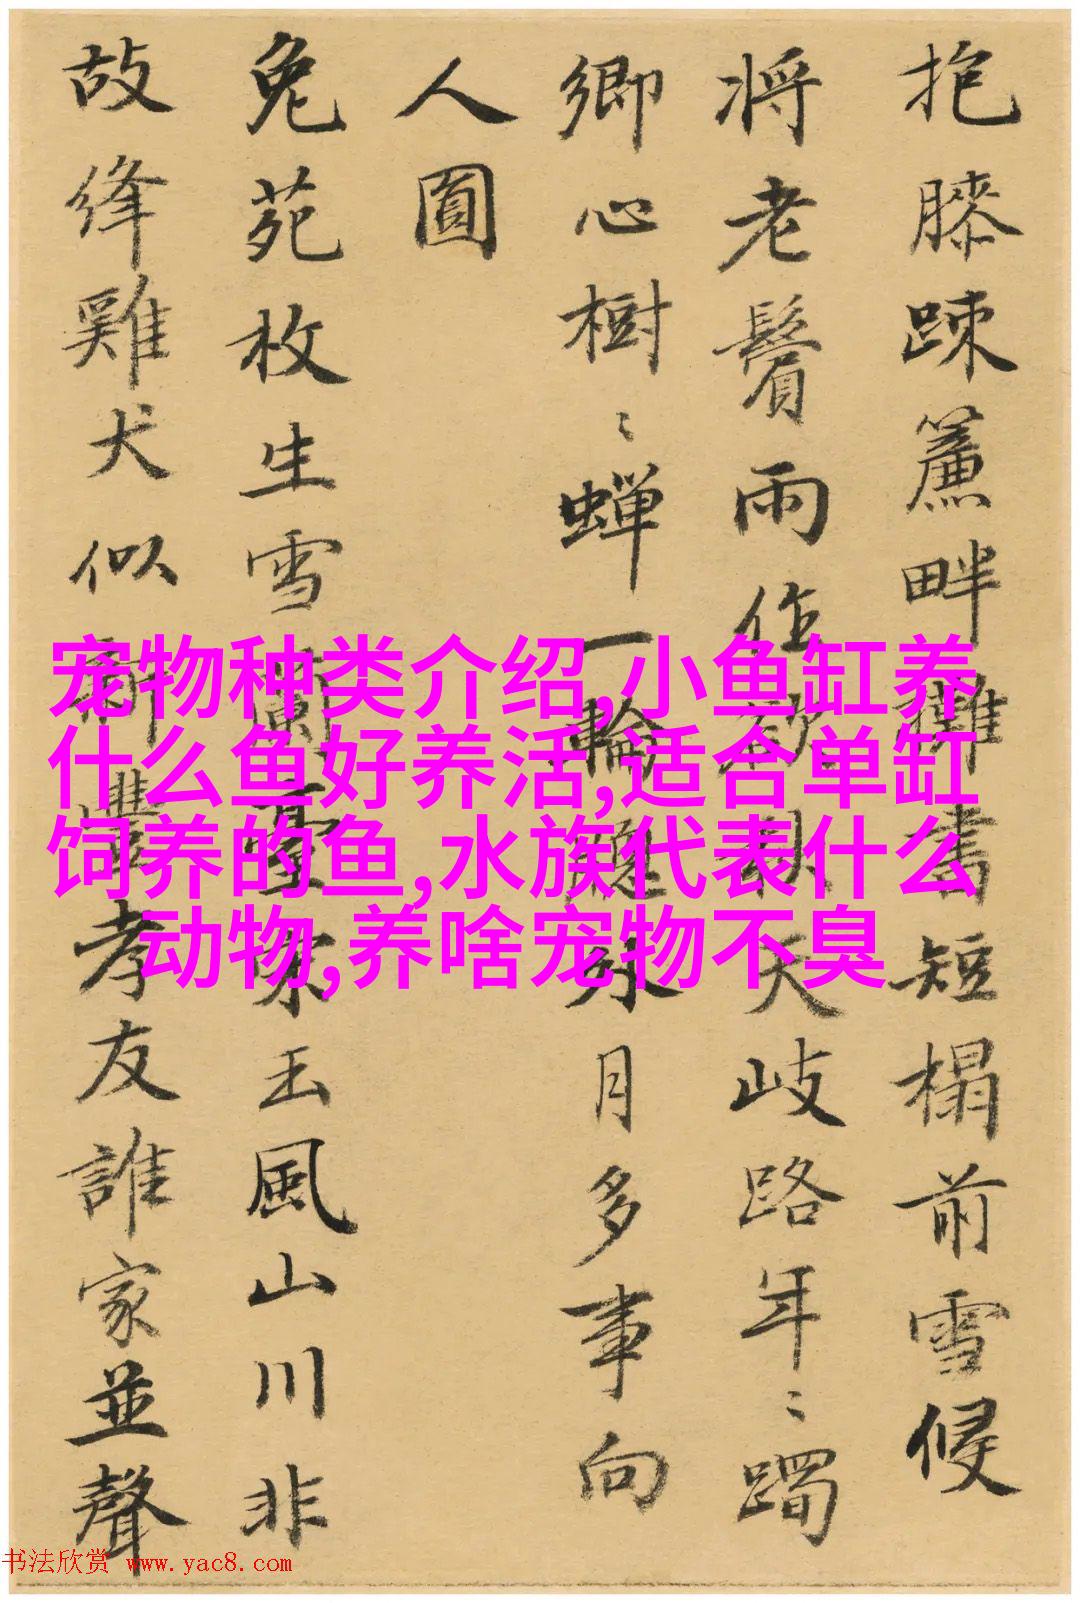 抱膝踈簾畔攤書短榻前雪侵
将老鬢雨作欲秋天岐路年〻躅
鄉心樹〻蝉一輪隠水月多事向
人圓
兔苑枚生雪蘭臺宋玉風山川非
故绛雞犬似新豐孝友誰家並聲
宠物种类介绍,小鱼缸养
什么鱼好养活,适合单缸
饲养的鱼,水族代表什么
动物,养啥宠物不臭
书法欣赏 www.yac8.com